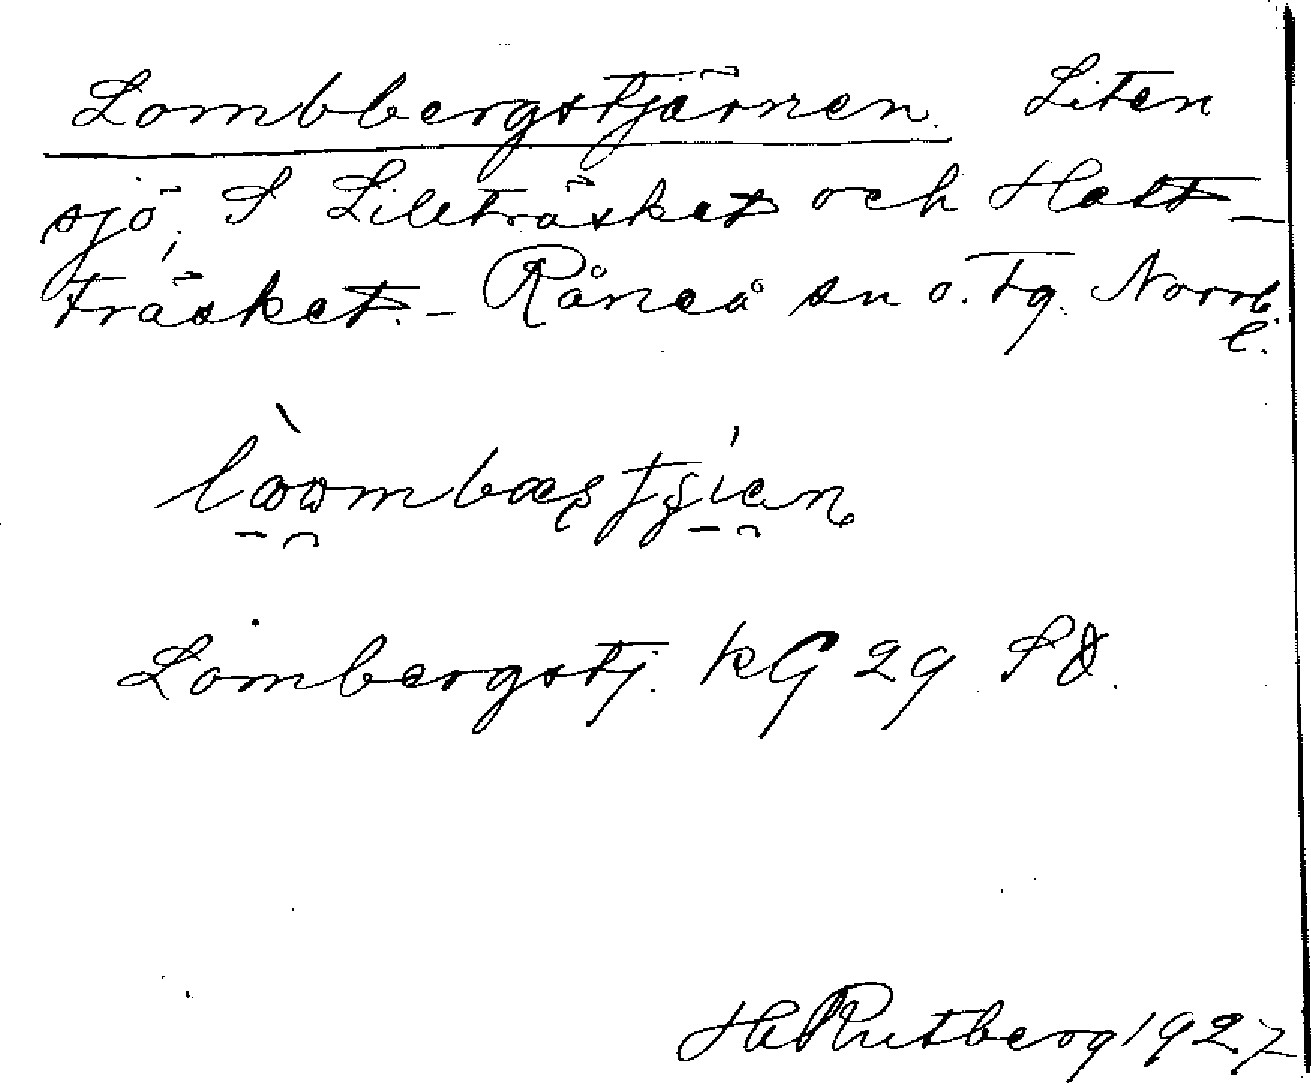 Lombbergstjärnen. Liten
sjö, S Lilträsket och Hatt-
träsket. - Råneå sn o. tg. Norrb.
l.
Lombergstj. kG 29 SO.
H Rutberg 1927